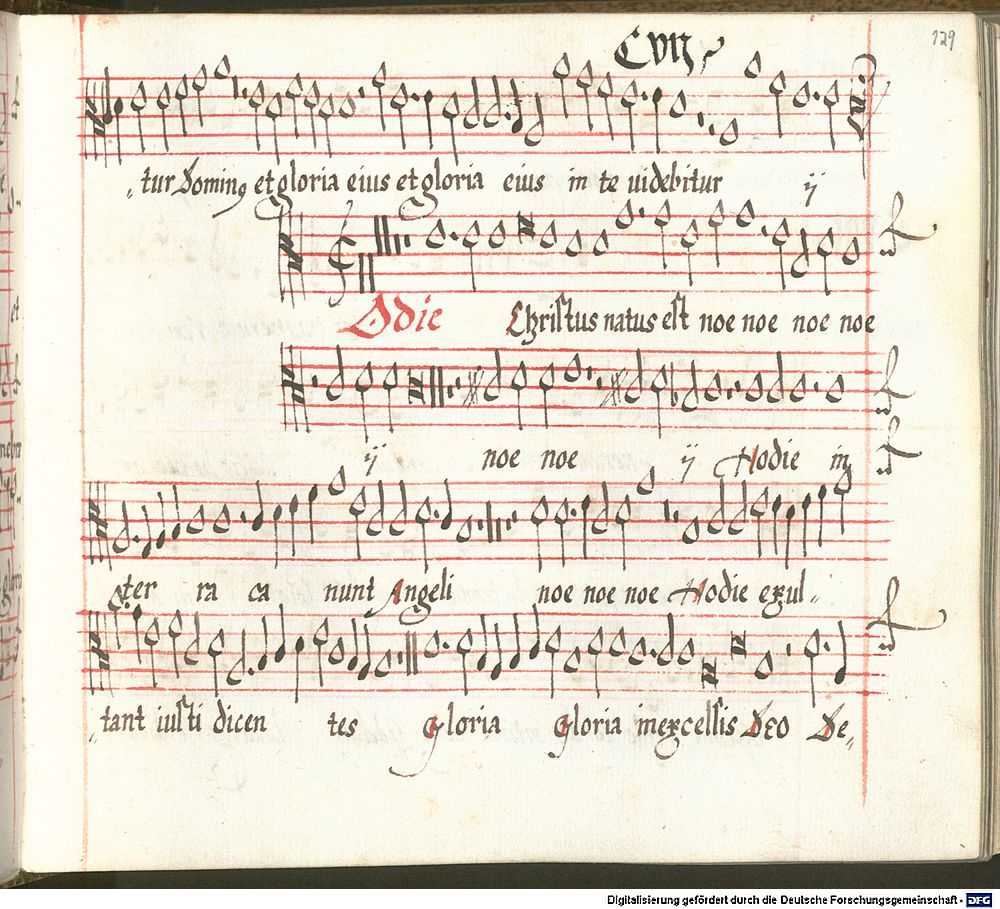 129
„tur Dominꝰ et gloria eius et gloria eius in te uidebitur ij
Odie Christus natus est noe noe noe noe
ij noe noe ij Hodie in
ter ra ca nunt Angeli noe noe noe Hodie exul„
„tant iusti dicen tes gloria gloria in excelsis Deo De„
Digitalisierung gefördert durch die Deutsche Forschungsgemeinschaft - DFG